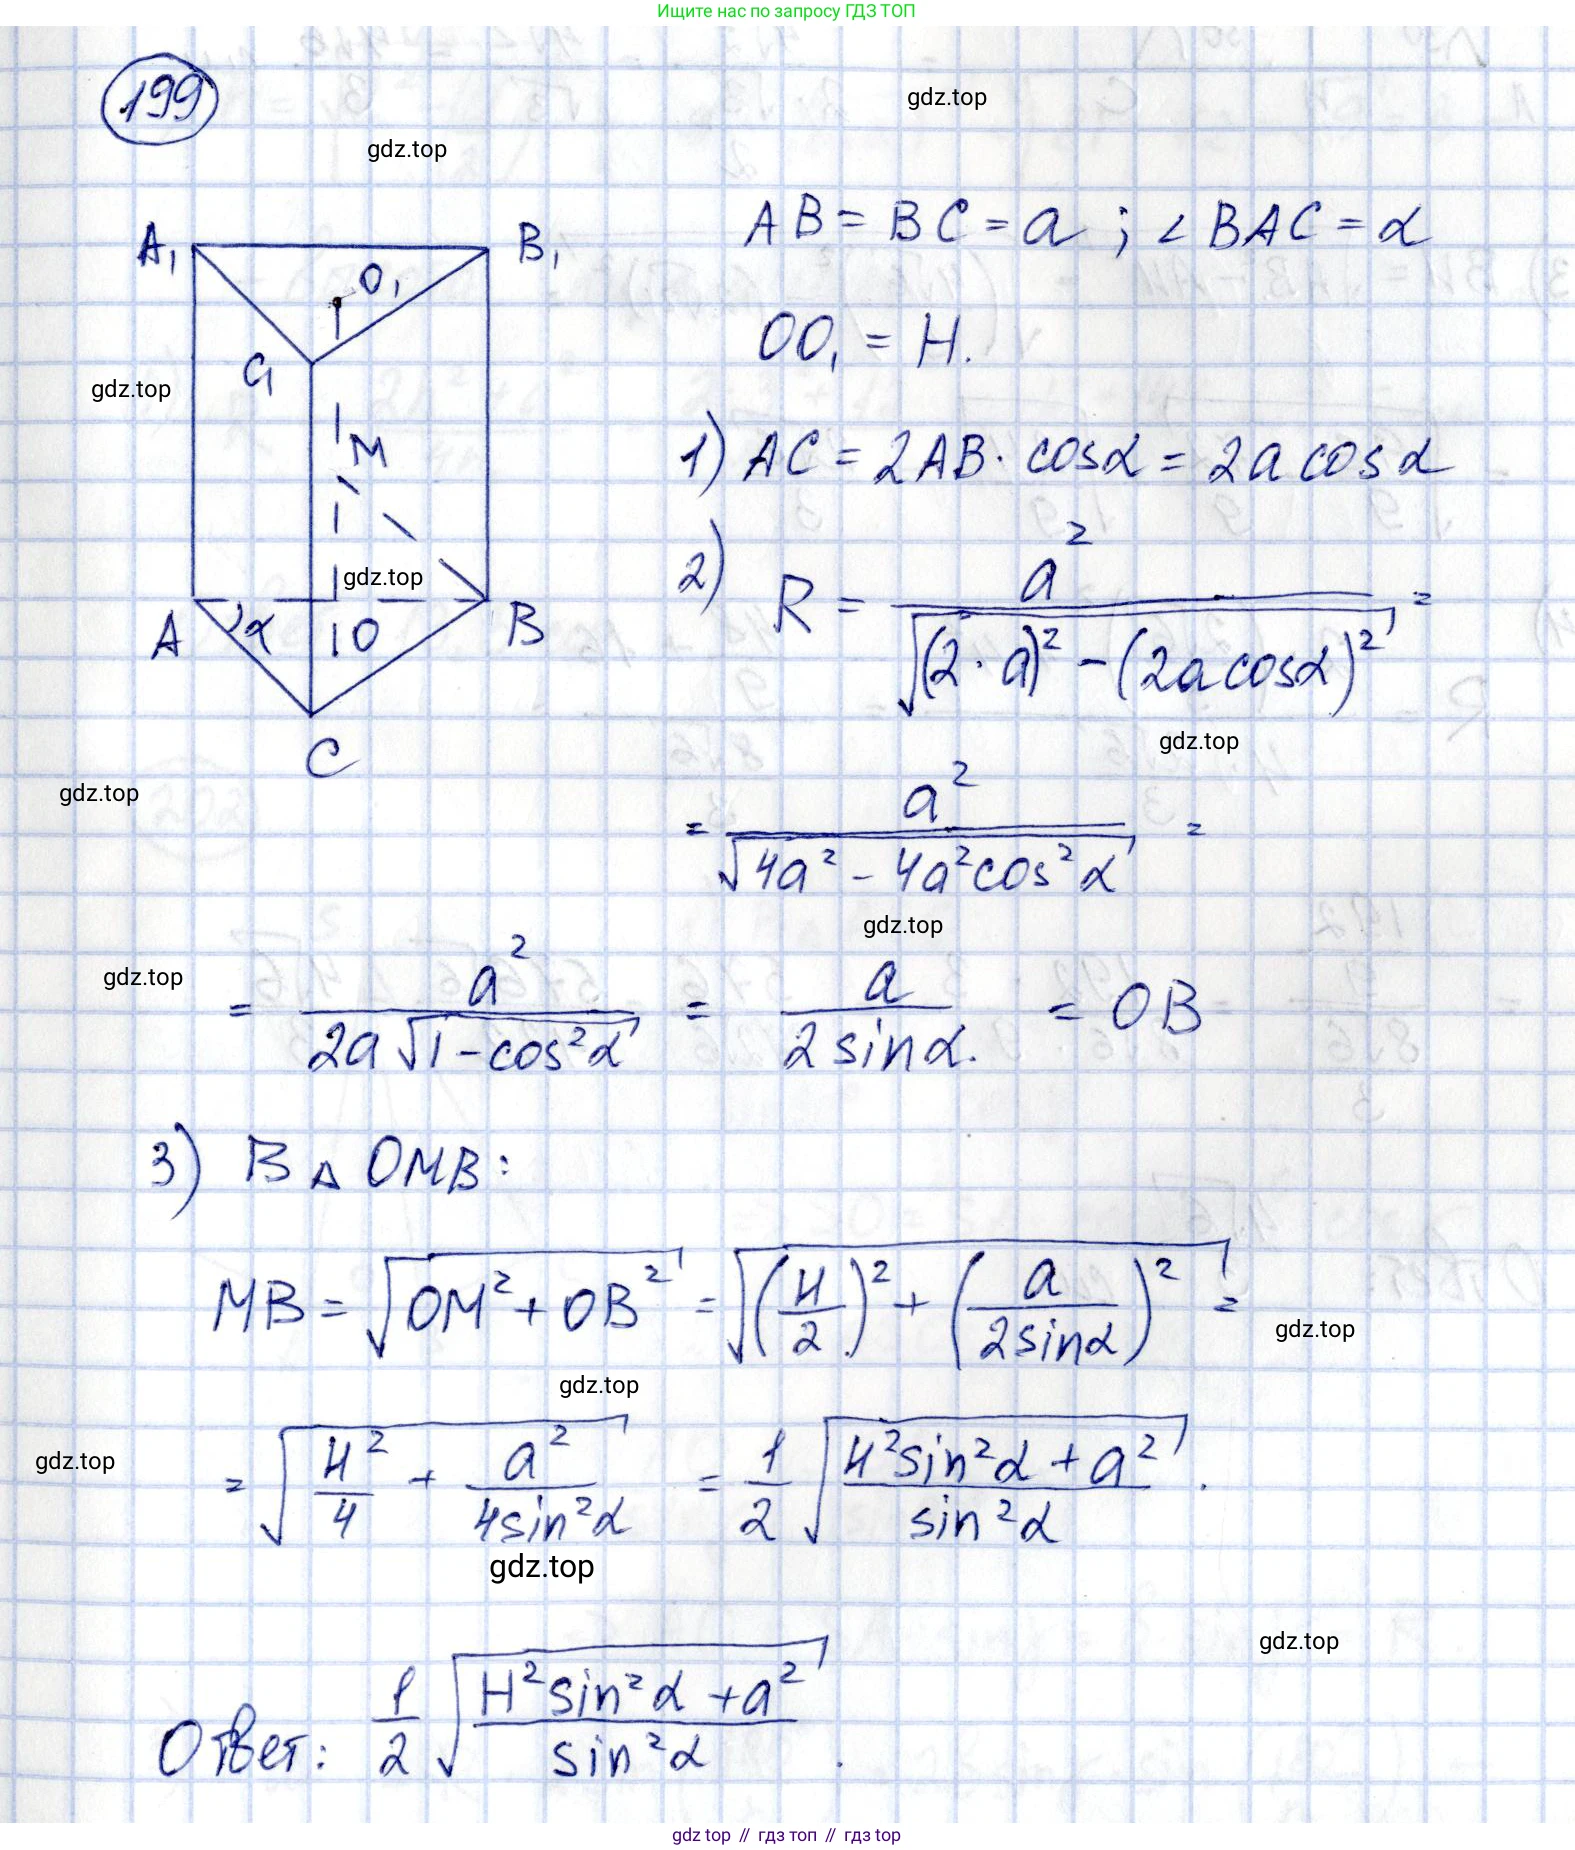 Ищите нас по запросу ГДЗ ТОП
199
gdz.top
gdz.top
A₁ B₁
O₁
C₁
gdz.top
M
gdz.top
A α O B
C
gdz.top
AB = BC = a ; ∠BAC = α
OO₁ = H.
1) AC = 2AB · cosα = 2a cosα
2) R = a² / √((2·a)² − (2a cosα)²) =
gdz.top
= a² / √(4a² − 4a²cos²α) =
gdz.top
gdz.top
= a² / (2a√(1 − cos²α)) = a / (2 sinα) . = OB
3) В △ OMB:
MB = √(OM² + OB²) = √((H/2)² + (a/(2sinα))²) =
gdz.top
gdz.top
gdz.top
= √(H²/4 + a²/(4sin²α)) = 1/2 √((H²sin²α + a²)/sin²α) .
gdz.top
gdz.top
Ответ: 1/2 √((H²sin²α + a²)/sin²α) .
gdz top // гдз топ // гдз top